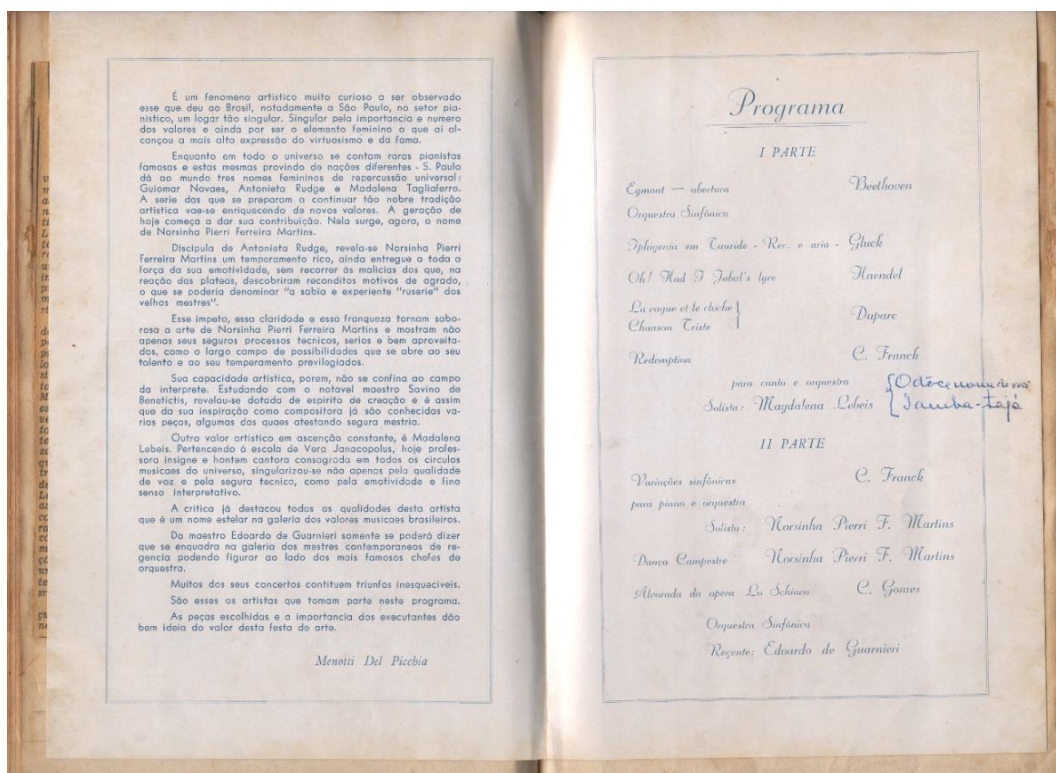 É um fenomeno artistico muito curioso a ser observado
esse que deu ao Brasil, notadamente a São Paulo, no setor pia-
nistico, um logar tão singular. Singular pela importancia e numero
dos valores e ainda por ser o elemento feminino o que ai al-
cançou a mais alta expressão do virtuosismo e da fama.
Enquanto em todo o universo se contam raras pianistas
famosas e estas mesmas provindo de nações diferentes - S. Paulo
dá ao mundo tres nomes femininos de repercussão universal:
Guiomar Novaes, Antonieta Rudge e Madalena Tagliaferro.
A serie das que se preparam a continuar tão nobre tradição
artistica vae-se enriquecendo de novos valores. A geração de
hoje começa a dar sua contribuição. Nela surge, agora, o nome
de Norsinha Pierri Ferreira Martins.
Discipula de Antonieta Rudge, revela-se Norsinha Pierri
Ferreira Martins um temperamento rico, ainda entregue a toda a
força da sua emotividade, sem recorrer ás malicias dos que, na
reação das plateas, descobriram reconditos motivos de agrado,
o que se poderia denominar "a sabia e experiente "ruserie" dos
velhos mestres".
Esse impeto, essa claridade e essa franqueza tornam sabo-
rosa a arte de Norsinha Pierri Ferreira Martins e mostram não
apenas seus seguros processos tecnicos, serios e bem aproveita-
dos, como o largo campo de possibilidades que se abre ao seu
talento e ao seu temperamento previlegiados.
Sua capacidade artistica, porem, não se confina ao campo
da interprete. Estudando com o notavel maestro Savino de
Benetictis, revelou-se dotada de espirito de creação e é assim
que da sua inspiração como compositora já são conhecidas va-
rias peças, algumas das quaes atestando segura mestria.
Outro valor artistico em ascenção constante, é Madalena
Lebeis. Pertencendo á escola de Vera Janacopulus, hoje profes-
sora insigne e hontem cantora consagrada em todos os circulos
musicaes do universo, singularizou-se não apenas pela qualidade
de voz e pela segura tecnica, como pela emotividade e fino
senso interpretativo.
A critica já destacou todas as qualidades desta artista
que é um nome estelar na galeria dos valores musicaes brasileiros.
Do maestro Edoardo de Guarnieri somente se poderá dizer
que se enquadra na galeria dos mestres contemporaneos de re-
gencia podendo figurar ao lado dos mais famosos chefes de
orquestra.
Muitos dos seus concertos contituem triunfos inesqueciveis.
São esses os artistas que tomam parte neste programa.
As peças escolhidas e a importancia dos executantes dão
bem ideia do valor desta festa de arte.
Menotti Del Picchia
Programa
I PARTE
Egmont — abertura Beethoven
Orquestra Sinfônica
Iphigenia em Tauride - Rec. e aria - Gluck
Oh! Had I Jubal's lyre Haendel
La vague et le cloche
Chanson Triste Duparc
Redemption C. Franck
para canto e orquestra
Solista: Magdalena Lebeis
Tamba-tajá
II PARTE
Variações sinfônicas C. Franck
para piano e orquestra
Solista: Norsinha Pierri F. Martins
Dança Campestre Norsinha Pierri F. Martins
Alvorada da opera Lo Schiavo C. Gomes
Orquestra Sinfônica
Regente: Edoardo de Guarnieri